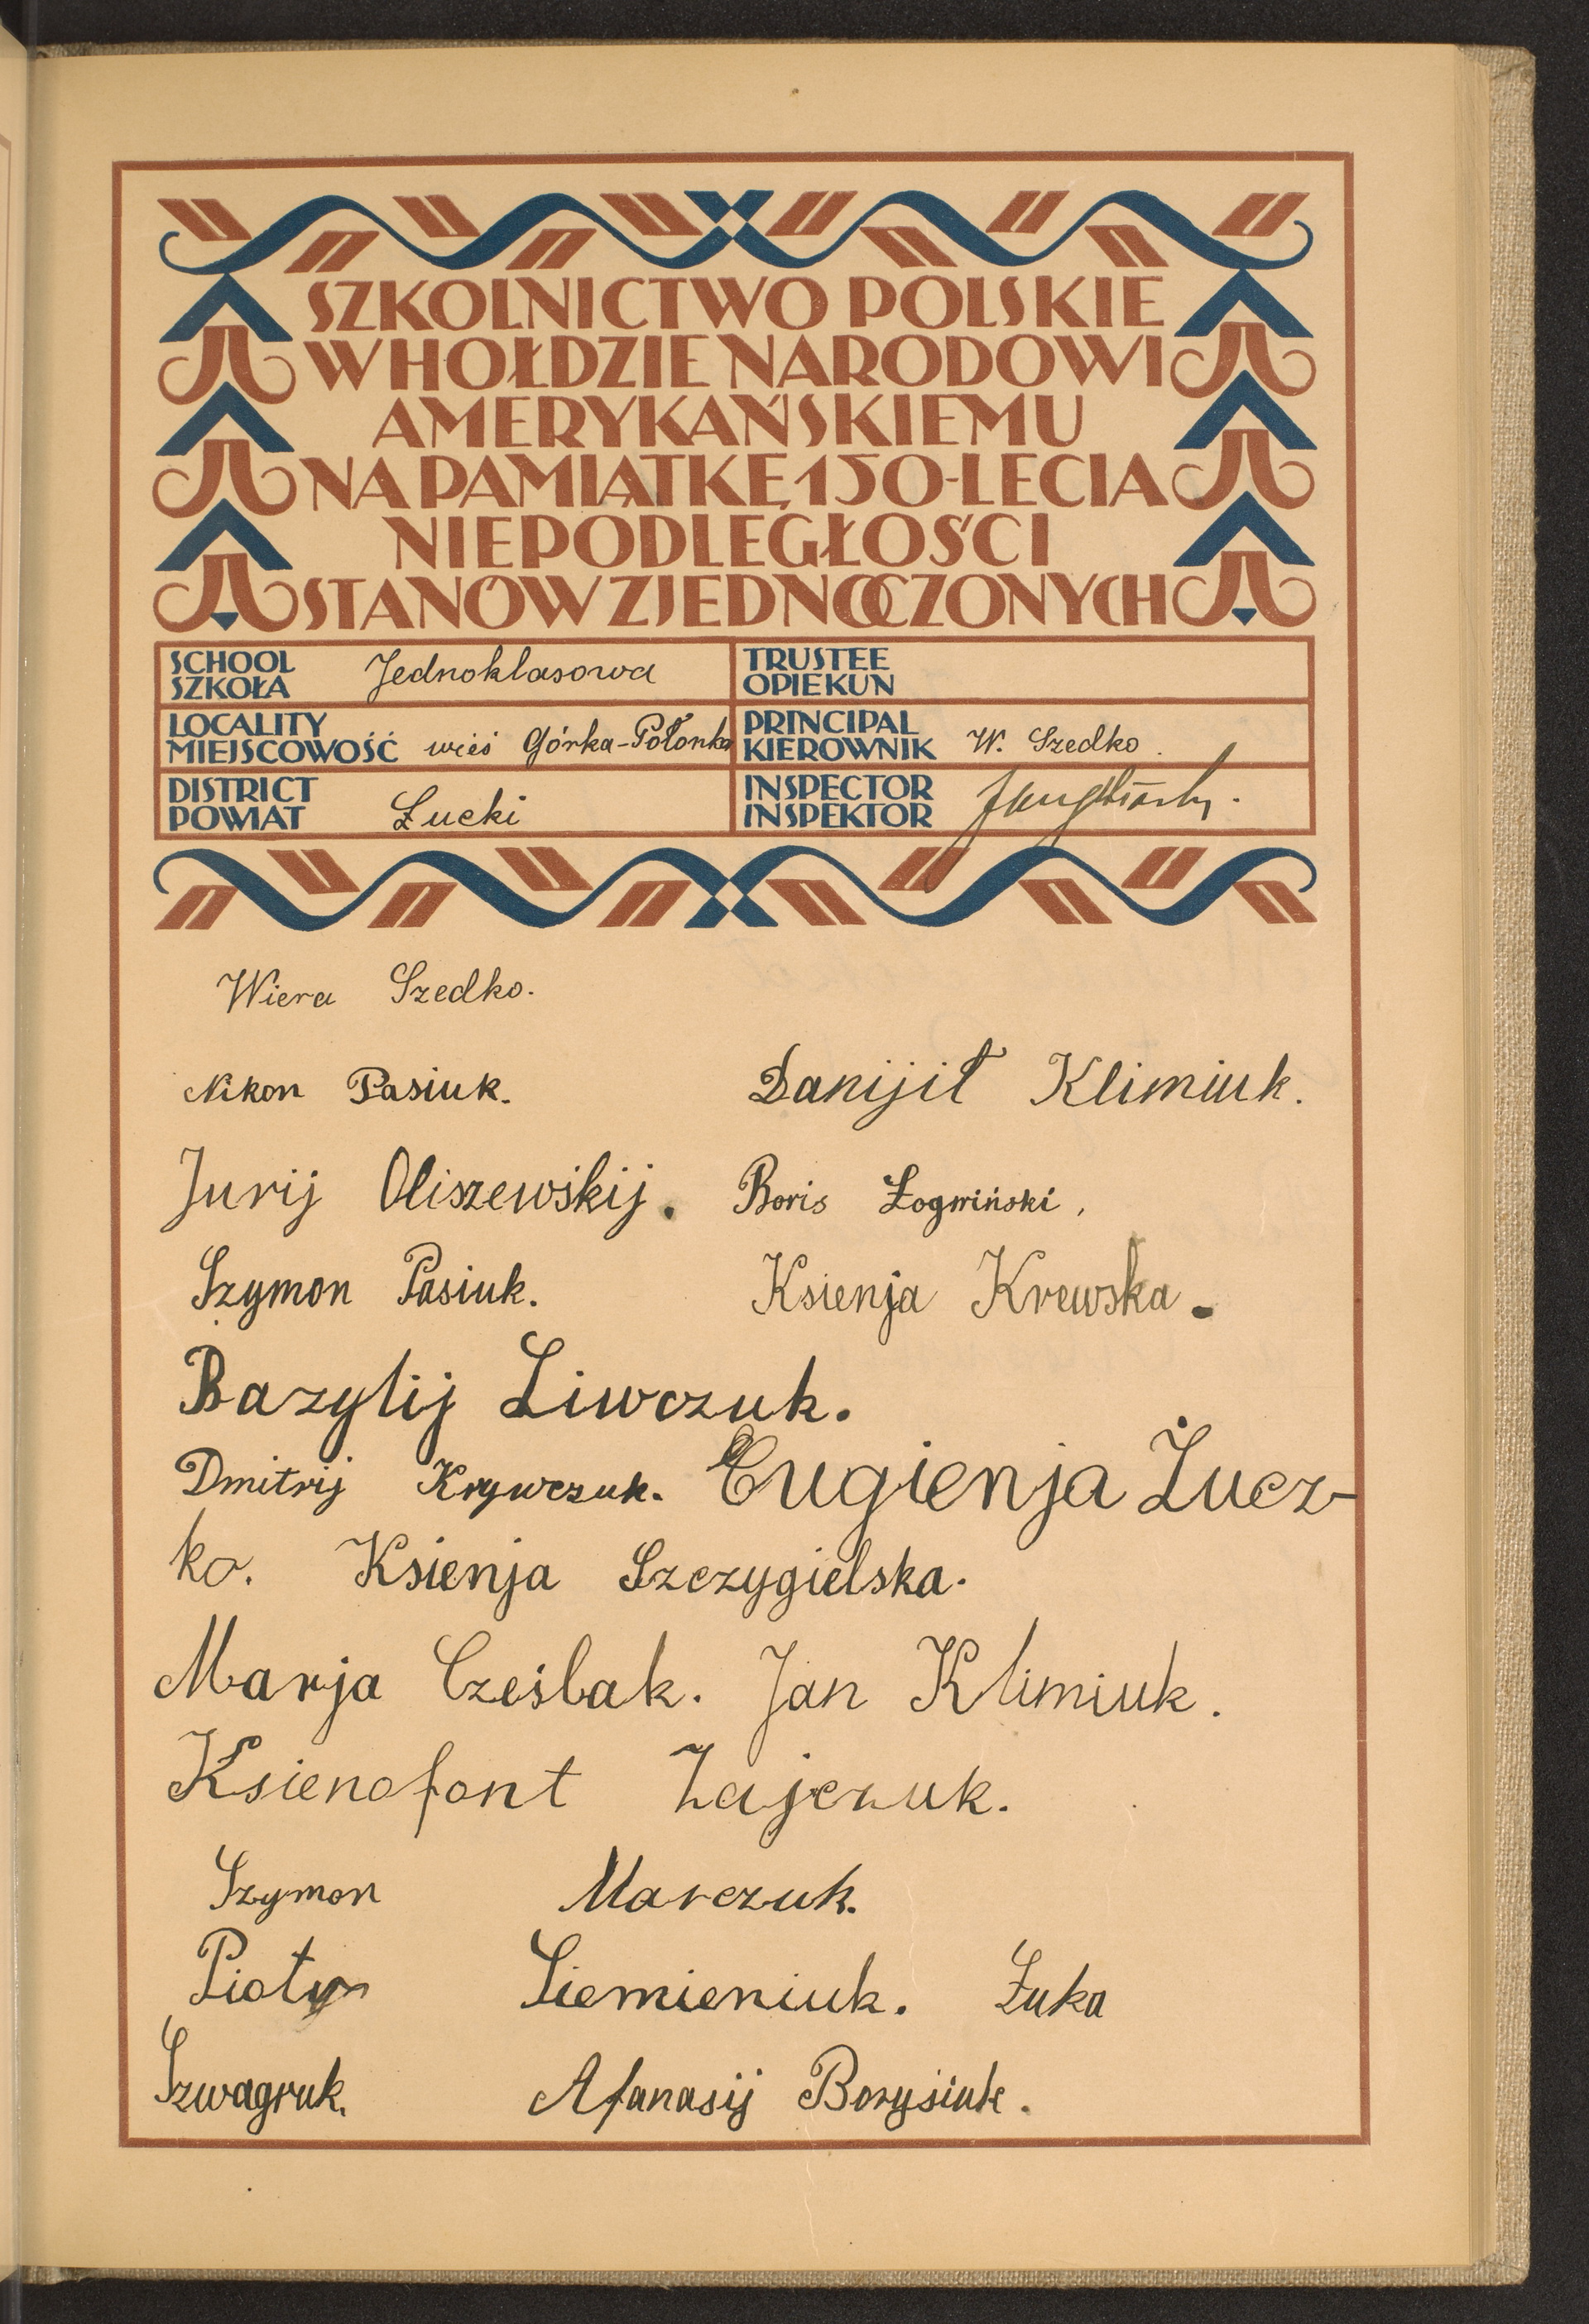 SZKOLNICTWO POLSKIE
W HOŁDZIE NARODOWI
AMERYKAŃSKIEMU
NA PAMIĄTKĘ 150-LECIA
NIEPODLEGŁOŚCI
STANÓW ZJEDNOCZONYCH
SCHOOL
SZKOŁA Jednoklasowa
TRUSTEE
OPIEKUN
LOCALITY
MIEJSCOWOŚĆ wieś Górka-Połonka
PRINCIPAL
KIEROWNIK W. Szedko.
DISTRICT
POWIAT Łucki
INSPECTOR
INSPEKTOR
Wiera Szedko.
Nikon Pasiuk. Danijił Klimiuk.
Jurij Oliszewśkij. Boris Łogwiński.
Szymon Pasiuk. Ksienja Krewska.
Bazylij Liwczuk.
Dmitrij Krywczuk. Eugienja Żucz-
ko. Ksienja Szczygielska.
Marja Cześlak. Jan Klimiuk.
Ksienofont Zajczuk.
Szymon Marczuk.
Piotr Siemieniuk. Łuka
Szwagruk. Afanasij Borysiuk.